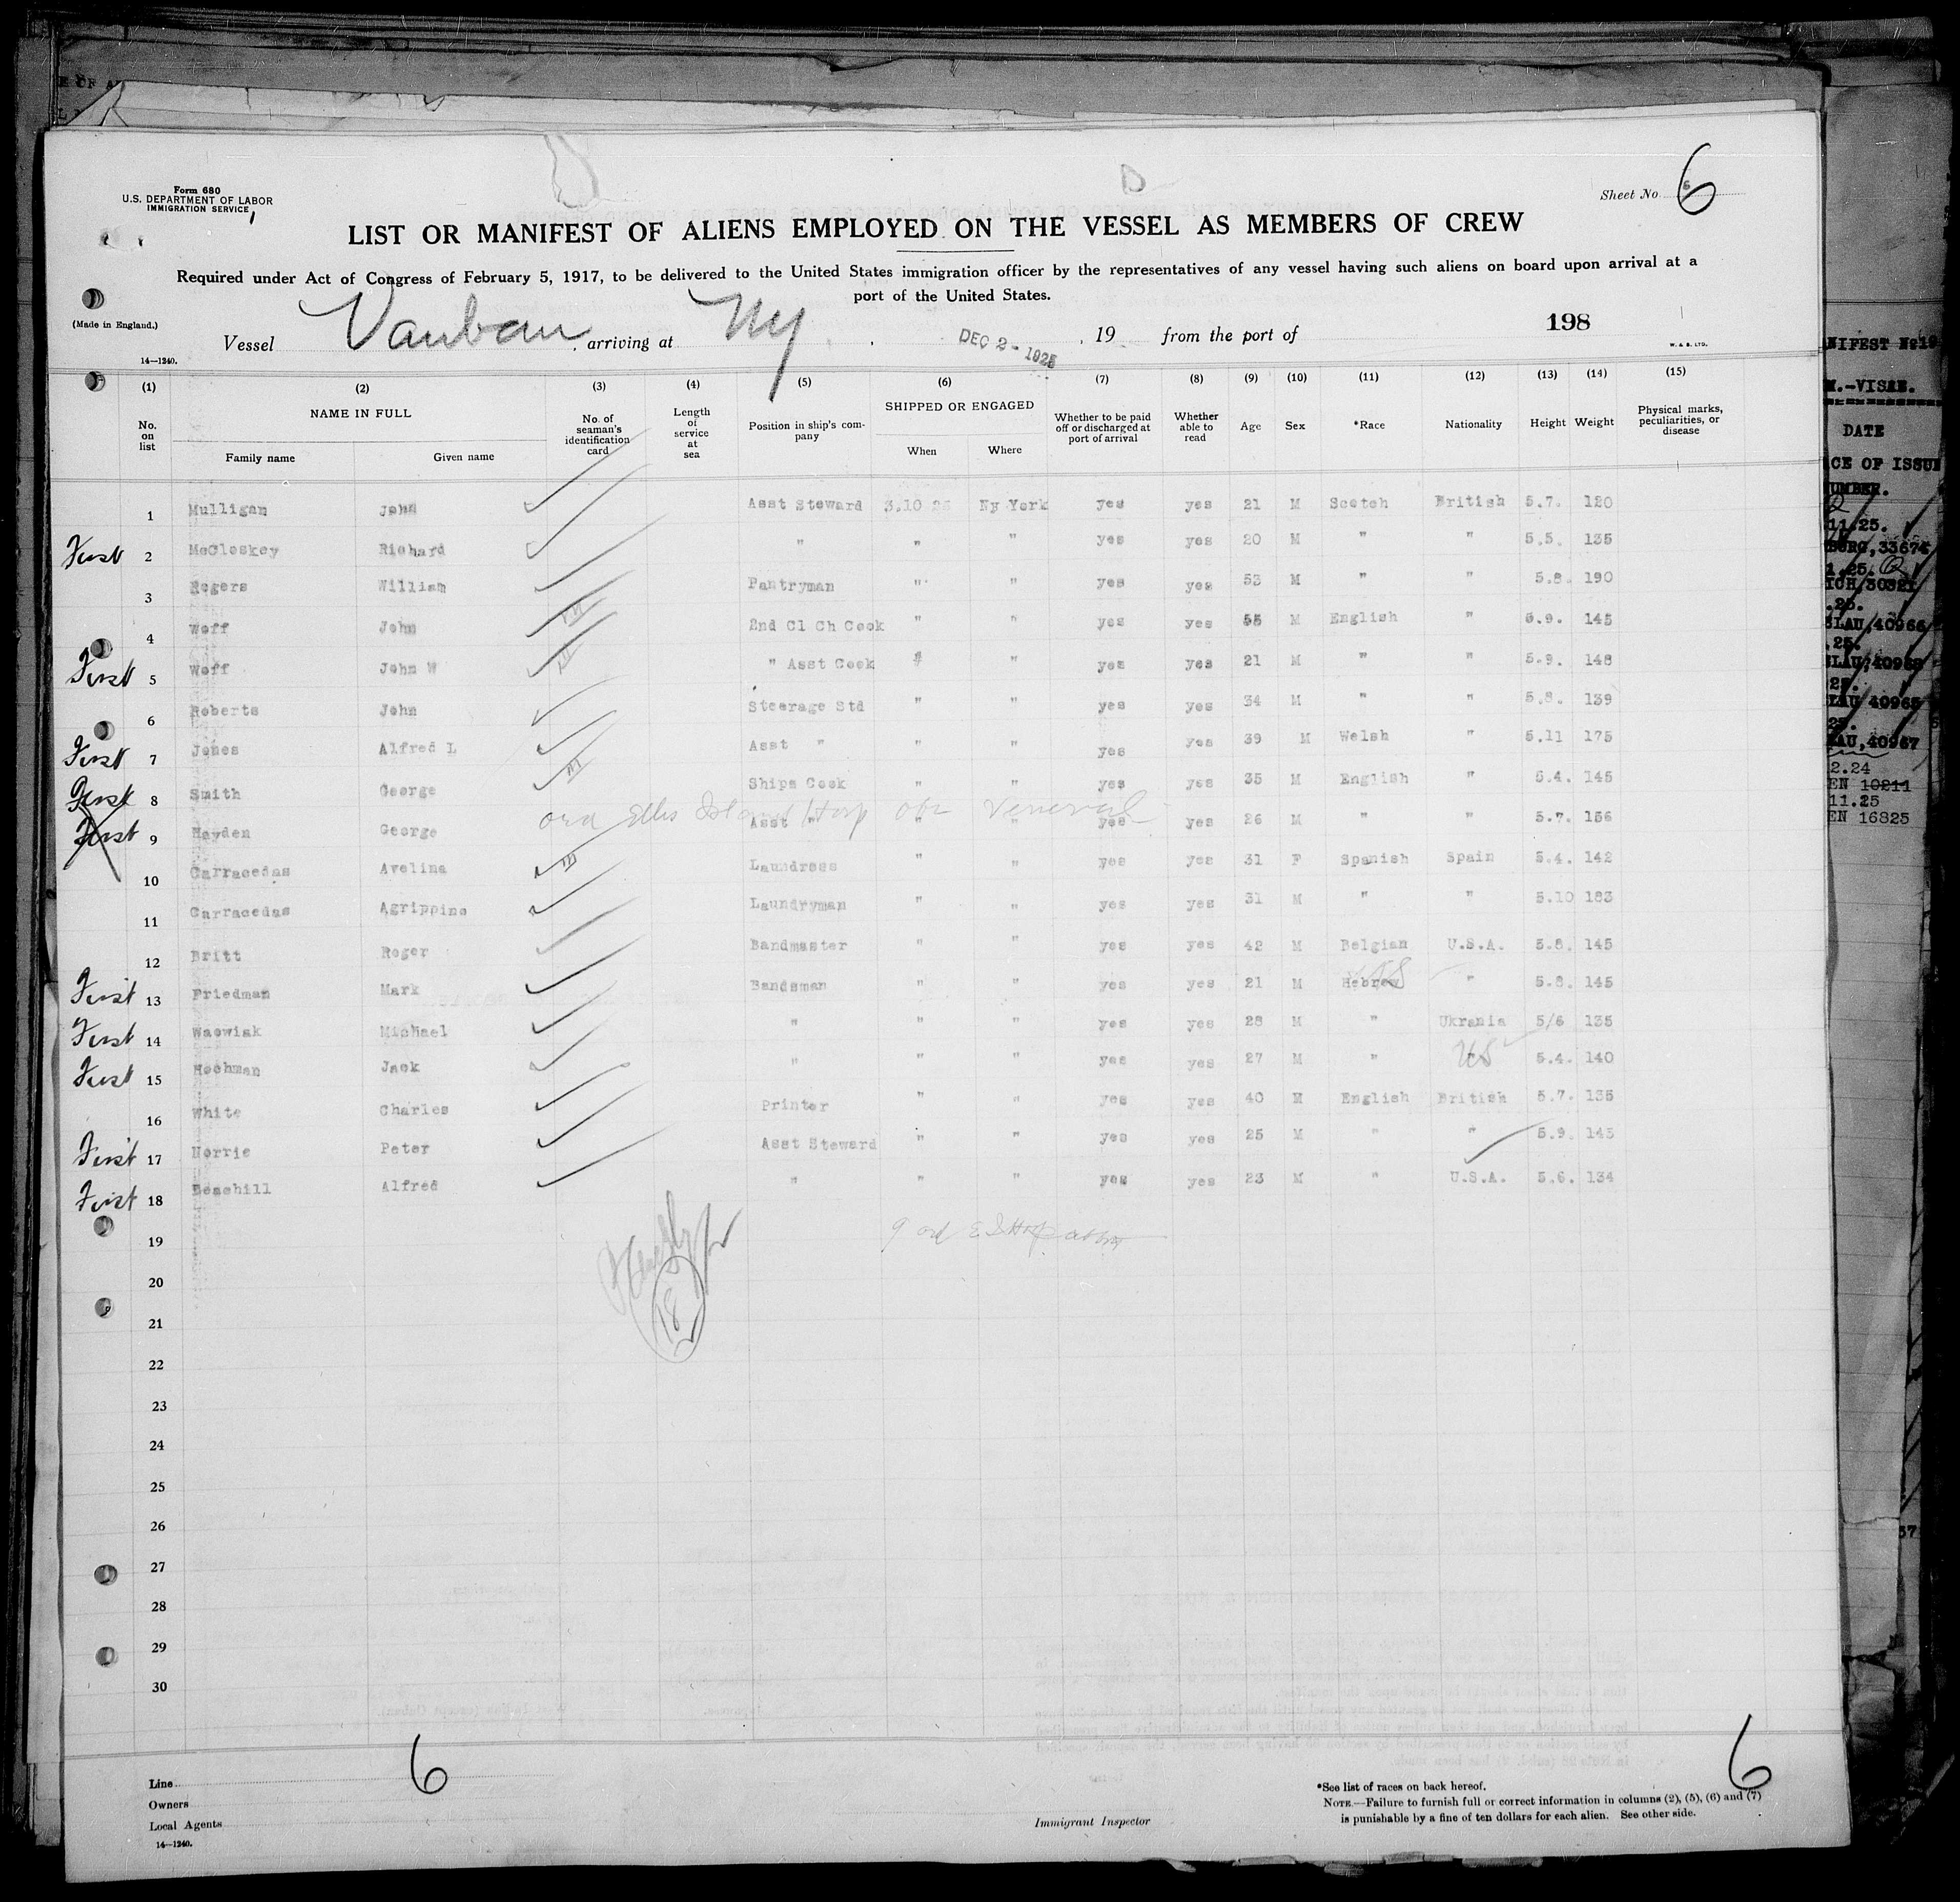 Form 680
U.S. DEPARTMENT OF LABOR
IMMIGRATION SERVICE
Sheet No. 6
LIST OR MANIFEST OF ALIENS EMPLOYED ON THE VESSEL AS MEMBERS OF CREW
Required under Act of Congress of February 5, 1917, to be delivered to the United States immigration officer by the representatives of any vessel having such aliens on board upon arrival at a
port of the United States.
(Made in England.)
Vessel Vauban, arriving at NY, DEC 2 - 1925, 19 from the port of 198
14—1240. W. & S. LTD.
(1) (2) (3) (4) (5) (6) (7) (8) (9) (10) (11) (12) (13) (14) (15)
No. on list NAME IN FULL Family name Given name No. of seaman's identification card Length of service at sea Position in ship's company SHIPPED OR ENGAGED When Where Whether to be paid off or discharged at port of arrival Whether able to read Age Sex *Race Nationality Height Weight Physical marks, peculiarities, or disease
1 Mulligan John Asst Steward 3.10 25 Ny York yes yes 21 M Scotch British 5.7. 120
First 2 McCloskey Richard " " " yes yes 20 M " " 5.5. 135
3 Rogers William Pantryman " " yes yes 53 M " " 5.8. 190
4 Woff John 2nd Cl Ch Cook " " yes yes 55 M English " 5.9. 145
First 5 Woff John W " Asst Cook " " yes yes 21 M " " 5.9. 148
6 Roberts John Steerage Std " " yes yes 34 M " " 5.8. 139
First 7 Jones Alfred L Asst " " " yes yes 39 M Welsh " 5.11 175
First 8 Smith George Ships Cook " " yes yes 35 M English " 5.4. 145
ord Ellis Island Hosp obs Venereal
First 9 Hayden George Asst " " " yes yes 26 M " " 5.7. 156
10 Carracedas Avelina Laundress " " yes yes 31 F Spanish Spain 5.4. 142
11 Carracedas Agrippino Laundryman " " yes yes 31 M " " 5.10 183
12 Britt Roger Bandmaster " " yes yes 42 M Belgian U.S.A. 5.8. 145
First 13 Friedman Mark Bandsman " " yes yes 21 M Hebrew US " 5.8. 145
First 14 Wacwiak Michael " " " yes yes 28 M " Ukrania 5/6 135
First 15 Hochman Jack " " " yes yes 27 M " US 5.4. 140
16 White Charles Printer " " yes yes 40 M English British 5.7. 135
First 17 Norrie Peter Asst Steward " " yes yes 25 M " " 5.9. 145
First 18 Beachill Alfred " " " yes yes 23 M " U.S.A. 5.6. 134
19
20
18
21
22
23
24
25
26
27
28
29
30
6 6
Line
Owners
Local Agents
14—1240.
Immigrant Inspector
*See list of races on back hereof.
NOTE.—Failure to furnish full or correct information in columns (2), (5), (6) and (7)
is punishable by a fine of ten dollars for each alien. See other side.
DATE
NUMBER.